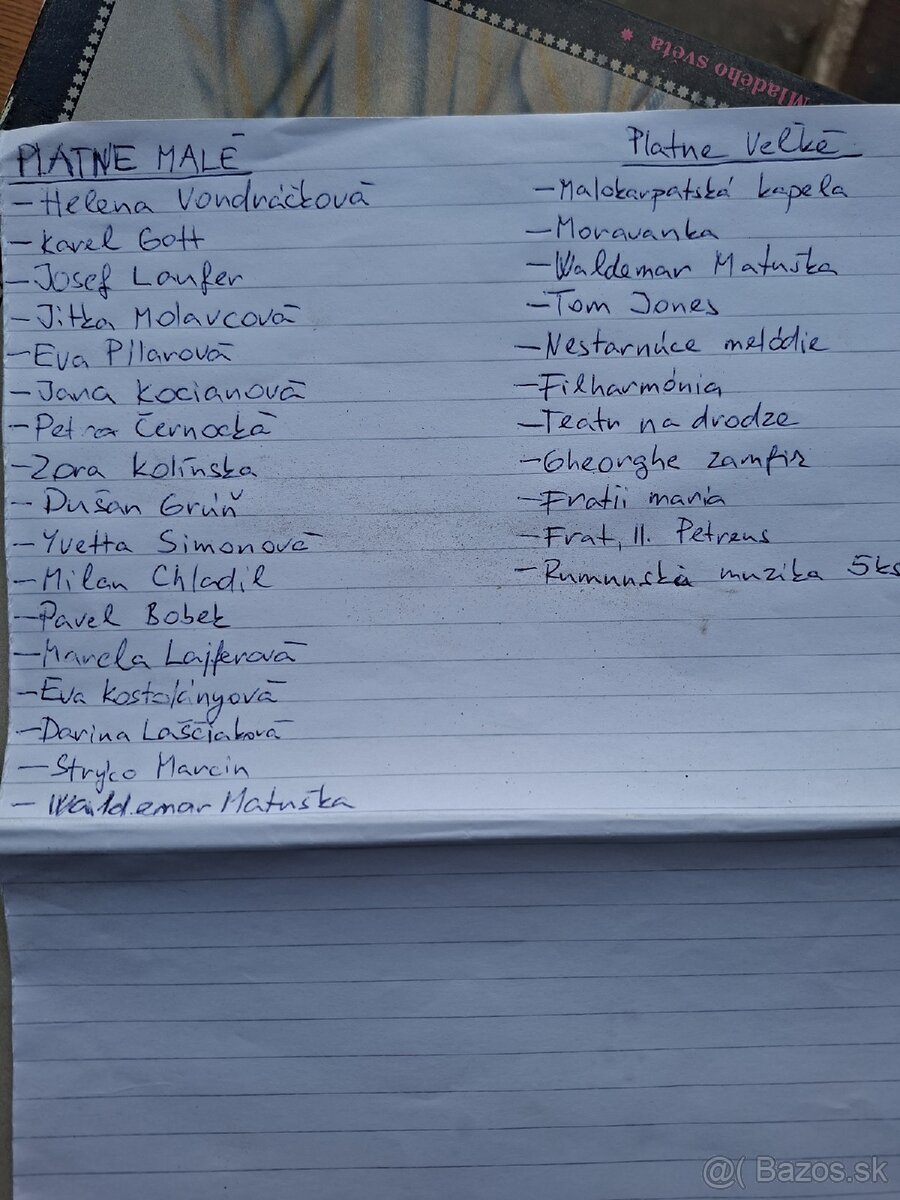 Mladého sveta *
PLATNE MALÉ
- Helena Vondráčková
- Karel Gott
- Josef Laufer
- Jitka Molavcová
- Eva Pilarová
- Jana Kocianová
- Petra Černocká
- Zora Kolínska
- Dušan Grúň
- Yvetta Simonová
- Milan Chladil
- Pavel Bobek
- Marcela Lajferová
- Eva Kostolányová
- Darina Laščiaková
- Stryco Marcin
- Waldemar Matuška
Platne Veľké
- Malokarpatská kapela
- Moravanka
- Waldemar Matuška
- Tom Jones
- Nestarnúce melódie
- Filharmónia
- Teatr na drodze
- Gheorghe zamfir
- Fratii maria
- Frat, II. Petreus
- Rumunská muzika 5ks
@( Bazos.sk